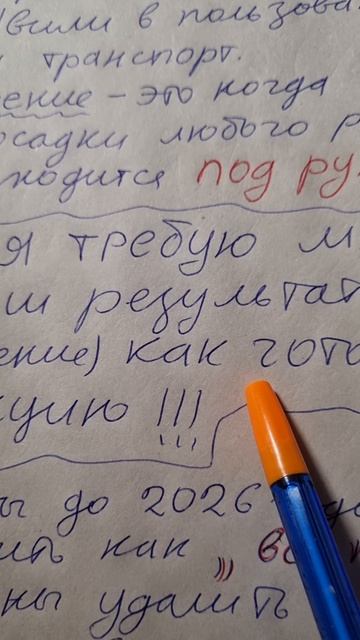 вили в пользова
транспорт.
ение - это когда
осадки любого р
ходится под ру
я требую м
ши результат
ение) как гото
кцию !!!
ы до 2026
ить как „ в
ны удалить